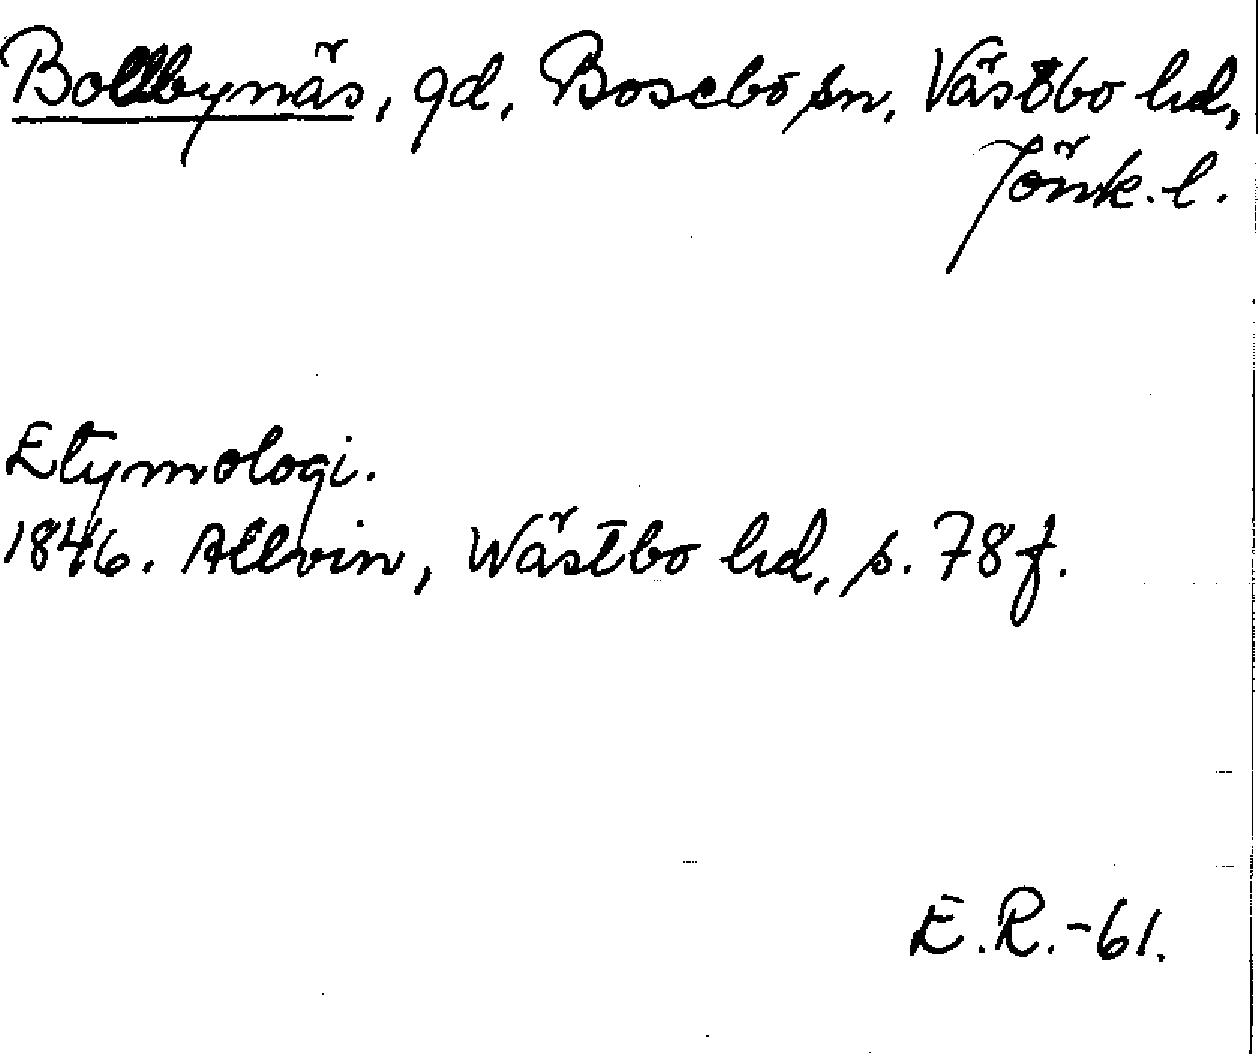 Bollbynäs, gd, Bosebo sn, Västbo hd,
Jönk. l.
Etymologi.
1846. Allvin, Wästbo hd, s. 78 f.
E.R.-61.